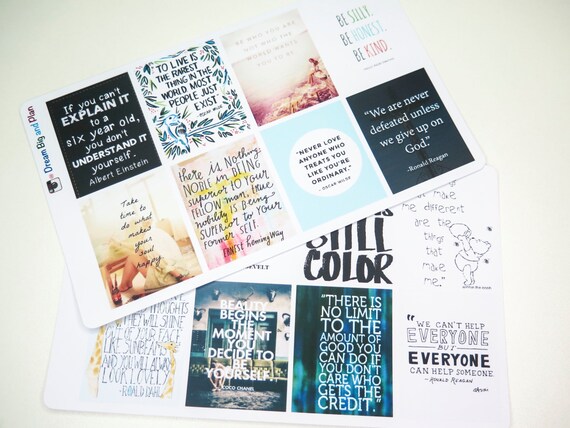 Dream Big and Plan
If you can't
EXPLAIN IT
to a
six year old,
you don't
UNDERSTAND IT
yourself.
Albert Einstein
TO LIVE IS
THE RAREST
THING IN THE
WORLD. MOST
PEOPLE JUST
EXIST.
BE WHO YOU ARE
NOT WHO THE
WORLD WANTS
YOU TO BE
BE SILLY.
BE HONEST.
BE KIND.
Take
time to
do what
makes
your
soul
happy.
there is Nothing
NOBLE in BEING
superior TO YOUR
FELLOW man, true
nobility is BEING
SUPERIOR TO YOUR
FORMER SELF.
ERNEST HEMINGWAY
"NEVER LOVE
ANYONE WHO
TREATS YOU
LIKE YOU'RE
ORDINARY."
- OSCAR WILDE
"We are never
defeated unless
we give up on
God."
-Ronald Reagan
STILL
COLOR
me different
are the
things
that
make
me."
THOUGHTS
THEY WILL SHINE
LIKE
SUNBEAMS
AND YOU WILL ALWAYS
LOOK LOVELY
-ROALD DAHL
BEAUTY
BEGINS
THE
MOMENT
YOU
DECIDE TO
BE
YOURSELF.
COCO CHANEL
"THERE IS
NO LIMIT
TO THE
AMOUNT OF
GOOD YOU
CAN DO IF
YOU DON'T
CARE WHO
GETS THE
CREDIT."
"WE CAN'T HELP
EVERYONE
BUT
EVERYONE
CAN HELP SOMEONE"
-RONALD REAGAN